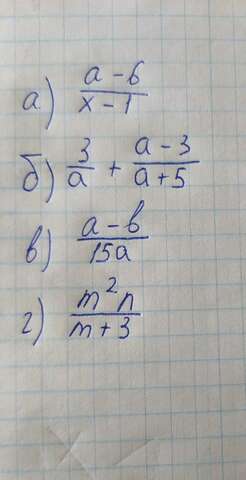 а) (a-6)/(x-1)
б) 3/a + (a-3)/(a+5)
в) (a-b)/(15a)
г) (m²n)/(m+3)